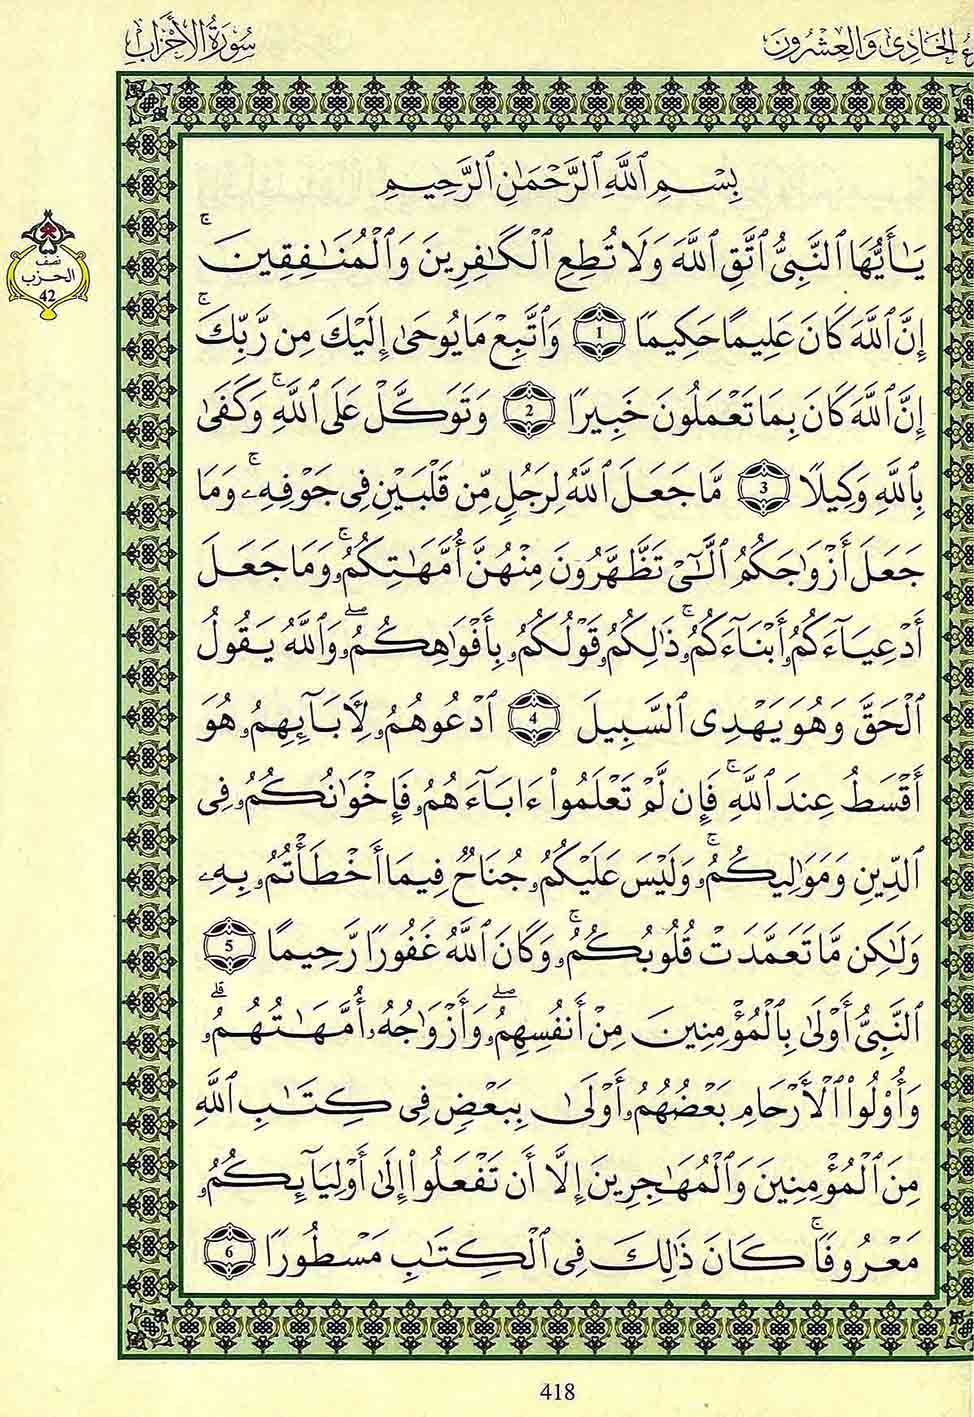 ءُ الحَادِى وَالعِشْرُونَ
سُورَةُ الأَحْزَابِ
بِسْمِ ٱللَّهِ ٱلرَّحْمَٰنِ ٱلرَّحِيمِ
يَٰأَيُّهَا ٱلنَّبِىُّ ٱتَّقِ ٱللَّهَ وَلَا تُطِعِ ٱلْكَٰفِرِينَ وَٱلْمُنَٰفِقِينَ ۚ
إِنَّ ٱللَّهَ كَانَ عَلِيمًا حَكِيمًا 1 وَٱتَّبِعْ مَا يُوحَىٰ إِلَيْكَ مِن رَّبِّكَ ۚ
إِنَّ ٱللَّهَ كَانَ بِمَا تَعْمَلُونَ خَبِيرًا 2 وَتَوَكَّلْ عَلَى ٱللَّهِ ۚ وَكَفَىٰ
بِٱللَّهِ وَكِيلًا 3 مَّا جَعَلَ ٱللَّهُ لِرَجُلٍ مِّن قَلْبَيْنِ فِى جَوْفِهِۦ ۚ وَمَا
جَعَلَ أَزْوَٰجَكُمُ ٱلَّـٰٓـِٔى تَظَّهَّرُونَ مِنْهُنَّ أُمَّهَٰتِكُمُۥ ۚ وَمَا جَعَلَ
أَدْعِيَآءَكُمُۥ أَبْنَآءَكُمُۥ ۚ ذَٰلِكُمُۥ قَوْلُكُمُۥ بِأَفْوَٰهِكُمُۥ ۖ وَٱللَّهُ يَقُولُ
ٱلْحَقَّ وَهُوَ يَهْدِى ٱلسَّبِيلَ 4 ٱدْعُوهُمُۥ لِأٓبَآئِهِمُۥ هُوَ
أَقْسَطُ عِندَ ٱللَّهِ ۚ فَإِن لَّمْ تَعْلَمُوا۟ ءَابَآءَهُمُۥ فَإِخْوَٰنُكُمُۥ فِى
ٱلدِّينِ وَمَوَٰلِيكُمُۥ ۚ وَلَيْسَ عَلَيْكُمُۥ جُنَاحٌ فِيمَا أَخْطَأْتُمُۥ بِهِۦ
وَلَٰكِن مَّا تَعَمَّدَتْ قُلُوبُكُمُۥ ۚ وَكَانَ ٱللَّهُ غَفُورًا رَّحِيمًا 5
ٱلنَّبِىُّ أَوْلَىٰ بِٱلْمُؤْمِنِينَ مِنْ أَنفُسِهِمُۥ ۖ وَأَزْوَٰجُهُۥ أُمَّهَٰتُهُمُۥ ۗ
وَأُو۟لُوا۟ ٱلْأَرْحَامِ بَعْضُهُمُۥ أَوْلَىٰ بِبَعْضٍ فِى كِتَٰبِ ٱللَّهِ
مِنَ ٱلْمُؤْمِنِينَ وَٱلْمُهَٰجِرِينَ إِلَّا أَن تَفْعَلُوا۟ إِلَىٰ أَوْلِيَآئِكُمُۥ
مَعْرُوفًا ۚ كَانَ ذَٰلِكَ فِى ٱلْكِتَٰبِ مَسْطُورًا 6
نصف
الحزب
42
418